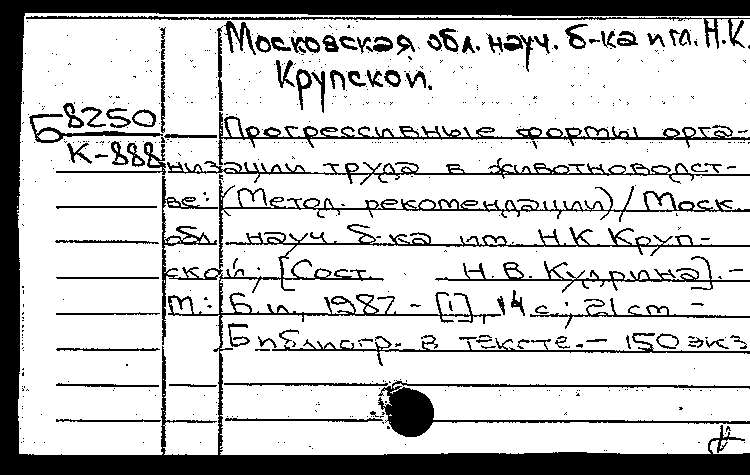 Московская обл. науч. б-ка им. Н.К.
Крупской.
Б 8250
К-888
Прогрессивные формы орга-
низации труда в животноводст-
ве: (Метод. рекомендации) / Моск.
обл. науч. б-ка им. Н.К. Круп-
ской; [Сост. Н.В. Кудрина]. -
М.: Б.и., 1987. - [1], 14 с.; 21 см. -
Библиогр. в тексте. - 150 экз